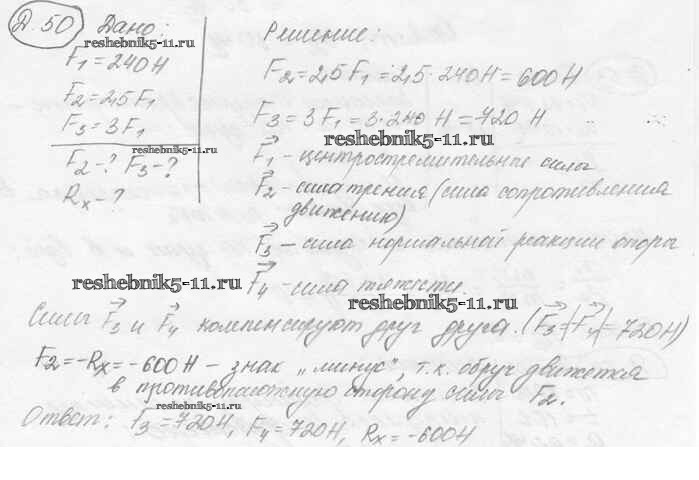 Д. 50 Дано: Решение:
reshebnik5-11.ru
F₁ = 240 Н
F₂ = 2,5 F₁
F₃ = 3 F₁
reshebnik5-11.ru
F₂ - ? F₃ - ?
Rₓ - ?
F₂ = 2,5 F₁ = 2,5 · 240 Н = 600 Н
F₃ = 3 F₁ = 3 · 240 Н = 720 Н
reshebnik5-11.ru
F₁ - центростремительные силы
F₂ - сила трения (сила сопротивления
движению)
F₃ - сила нормальной реакции опоры
reshebnik5-11.ru
F₄ - сила тяжести.
reshebnik5-11.ru
Силы F₃ и F₄ компенсируют друг друга. (|F₃| = |F₄| = 720 Н)
F₂ = -Rₓ = -600 Н - знак „минус", т.к. обруч движется
в противоположную сторону силы F₂.
reshebnik5-11.ru
Ответ: F₃ = 720 Н, F₄ = 720 Н, Rₓ = -600 Н